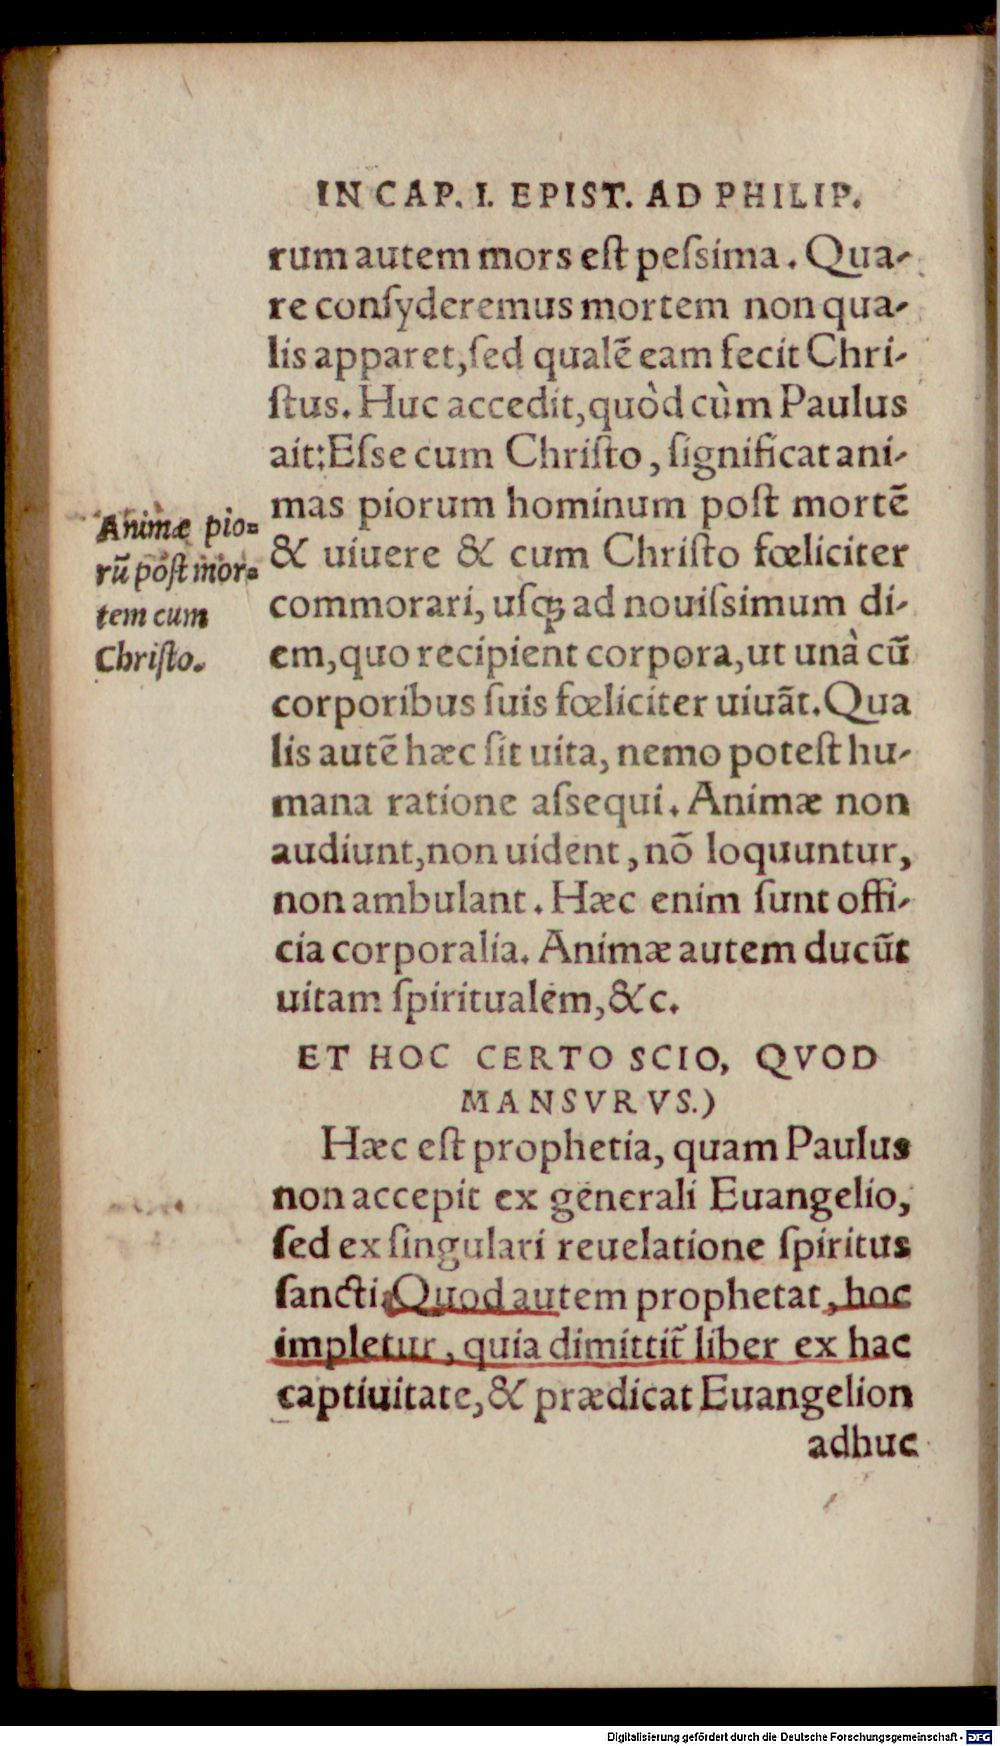 IN CAP. I. EPIST. AD PHILIP.
rum autem mors est peſsima. Qua-
re conſyderemus mortem non qua-
lis apparet, ſed qualẽ eam fecit Chri-
ſtus. Huc accedit, quòd cùm Paulus
ait: Eſse cum Chriſto, ſignificat ani-
mas piorum hominum poſt mortẽ
& uiuere & cum Chriſto fœliciter
commorari, uſqꝫ ad nouiſsimum di-
em, quo recipient corpora, ut unà cũ
corporibus ſuis fœliciter uiuãt. Qua
lis autẽ hæc ſit uita, nemo poteſt hu-
mana ratione aſsequi. Animæ non
audiunt, non uident, nõ loquuntur,
non ambulant. Hæc enim ſunt offi-
cia corporalia. Animæ autem ducũt
uitam ſpiritualem, &c.
Animæ pio=
rũ poſt mor=
tem cum
Chriſto.
ET HOC CERTO SCIO, QVOD
MANSVRVS.)
Hæc eſt prophetia, quam Paulus
non accepit ex generali Euangelio,
ſed ex ſingulari reuelatione ſpiritus
ſancti. Quod autem prophetat, hoc
impletur, quia dimittit̃ liber ex hac
captiuitate, & prædicat Euangelion
adhuc
Digitalisierung gefördert durch die Deutsche Forschungsgemeinschaft - DFG